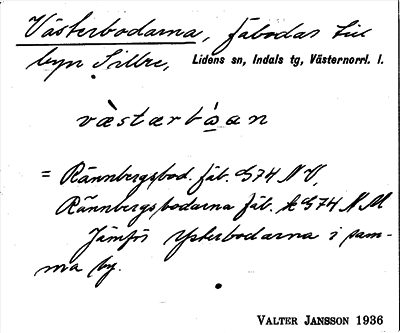 Västerbodarna, fäbodar till
byn Sillre, Lidens sn, Indals tg, Västernorrl. l.
væ̀stærbå̀an
= Rännbergsbod. fäb. G74 NV,
Rännbergsbodarna fäb. k G74 NM
Jämför Ysterbodarna i sam-
ma by.
VALTER JANSSON 1936